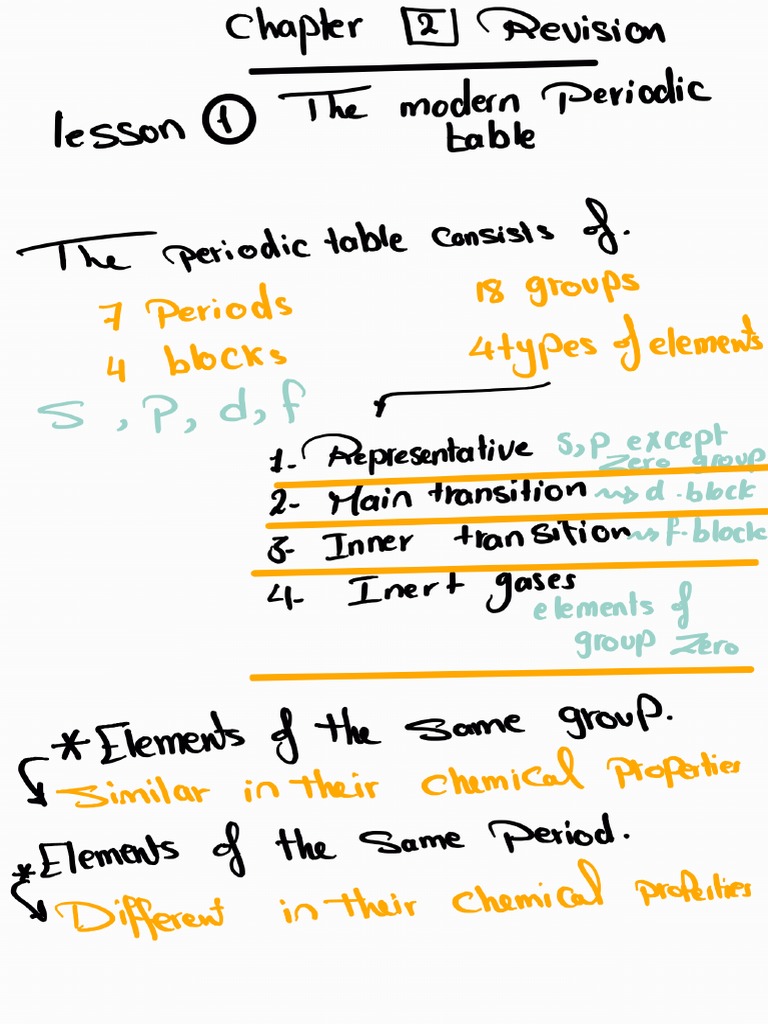 Chapter 2 Revision
lesson 1 The modern Periodic
table
The periodic table consists of.
7 Periods 18 groups
4 blocks 4 types of elements
S, P, d, f
1- Representative s,p except
zero group
2- Main transition d-block
3- Inner transition f-block
4- Inert gases
elements of
group Zero
* Elements of the same group.
Similar in their chemical properties
* Elements of the same Period.
Different in their chemical properties